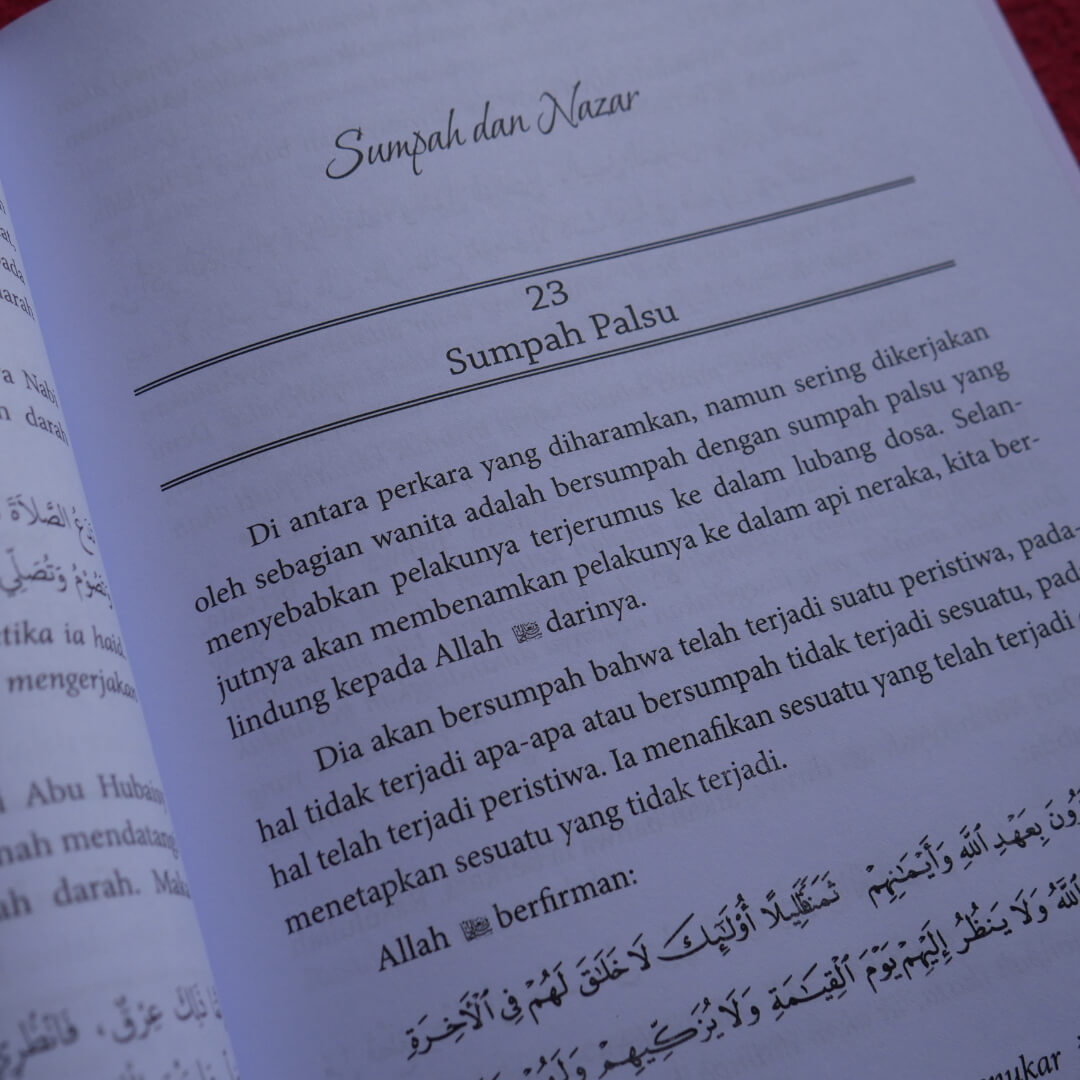 Sumpah dan Nazar
23
Sumpah Palsu
Di antara perkara yang diharamkan, namun sering dikerjakan
oleh sebagian wanita adalah bersumpah dengan sumpah palsu yang
menyebabkan pelakunya terjerumus ke dalam lubang dosa. Selan-
jutnya akan membenamkan pelakunya ke dalam api neraka, kita ber-
lindung kepada Allah ﷻ darinya.
Dia akan bersumpah bahwa telah terjadi suatu peristiwa, pada-
hal tidak terjadi apa-apa atau bersumpah tidak terjadi sesuatu, pada
hal telah terjadi peristiwa. Ia menafikan sesuatu yang telah terjadi
menetapkan sesuatu yang tidak terjadi.
Allah ﷻ berfirman:
بِعَهْدِ ٱللَّهِ وَأَيْمَٰنِهِمْ
ثَمَنًا قَلِيلًا أُو۟لَٰٓئِكَ لَا خَلَٰقَ لَهُمْ فِى ٱلْأَخِرَةِ
ٱللَّهُ وَلَا يَنظُرُ إِلَيْهِمْ يَوْمَ ٱلْقِيَٰمَةِ وَلَا يُزَكِّيهِمْ
Nabi
darah
الصَّلاَةَ
وَتَصُومُ وَتُصَلِّي
ia haid
mengerjakan
Abu Hubais
mendatang
darah.
عِرْقٌ، فَانْظُرِي